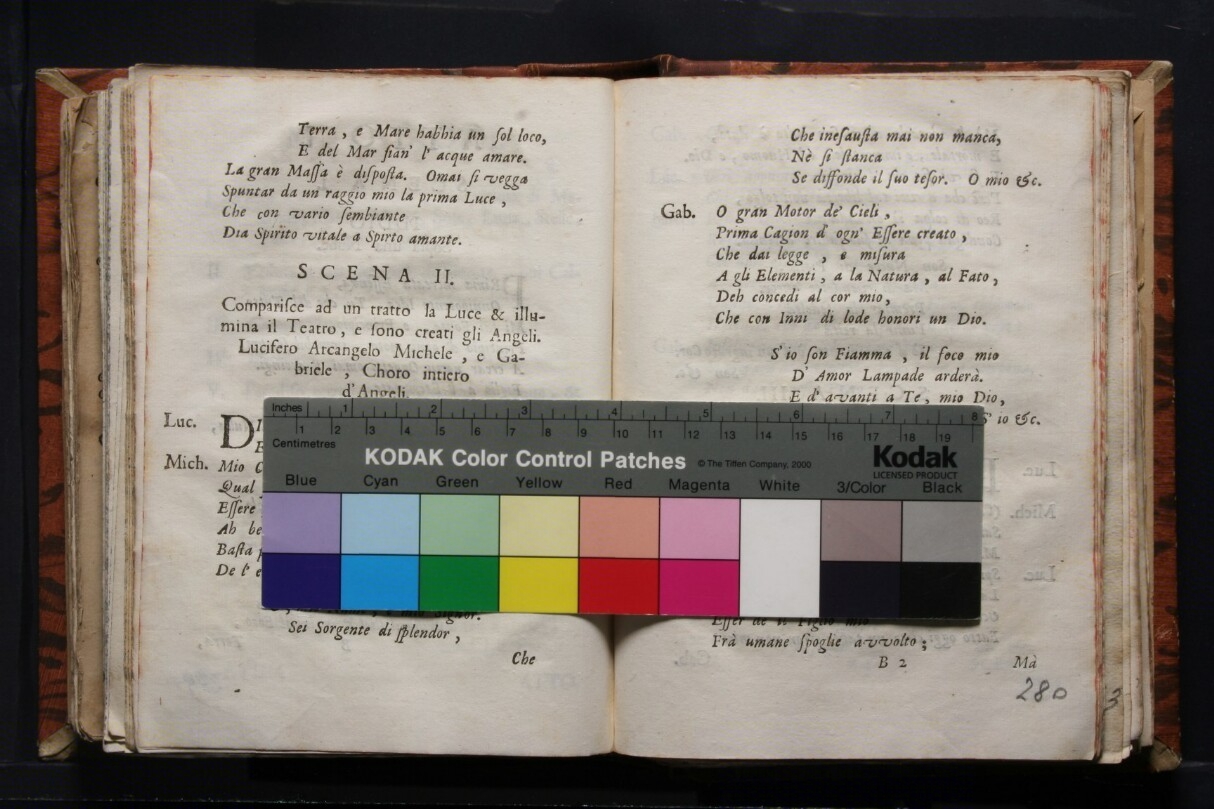 Terra, e Mare habbia un ſol loco,
E del Mar ſian' l' acque amare.
La gran Maſſa è diſpoſta. Omai ſi vegga
Spuntar da un raggio mio la prima Luce,
Che con vario ſembiante
Dia Spirito vitale a Spirto amante.
SCENA II.
Compariſce ad un tratto la Luce & illu-
mina il Teatro, e ſono creati gli Angeli.
Lucifero Arcangelo Michele, e Ga-
briele, Choro intiero
d'Angeli.
Luc. D
Mich. Mio
Qual
Eſſere
Ah be
Baſta
De l' e
Signor.
Sei Sorgente di ſplendor,
Che
Che ineſauſta mai non manca,
Nè ſi ſtanca
Se diffonde il ſuo teſor. O mio &c.
Gab. O gran Motor de' Cieli,
Prima Cagion d' ogn' Eſſere creato,
Che dai legge, e miſura
A gli Elementi, a la Natura, al Fato,
Deh concedi al cor mio,
Che con Inni di lode honori un Dio.
S' io ſon Fiamma, il foco mio
D' Amor Lampade arderà.
E d' avanti a Te, mio Dio,
S' io &c.
Eſſer de il Figlio mio
Frà umane ſpoglie avvolto;
B 2 Mà
280
3
Inches 1 2 3 4 5 6 7 8
1 2 3 4 5 6 7 8 9 10 11 12 13 14 15 16 17 18 19
Centimetres
KODAK Color Control Patches © The Tiffen Company, 2000 Kodak
LICENSED PRODUCT
Blue Cyan Green Yellow Red Magenta White 3/Color Black